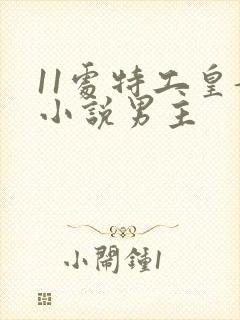 11處特工皇
小說男主
小鬧鐘1